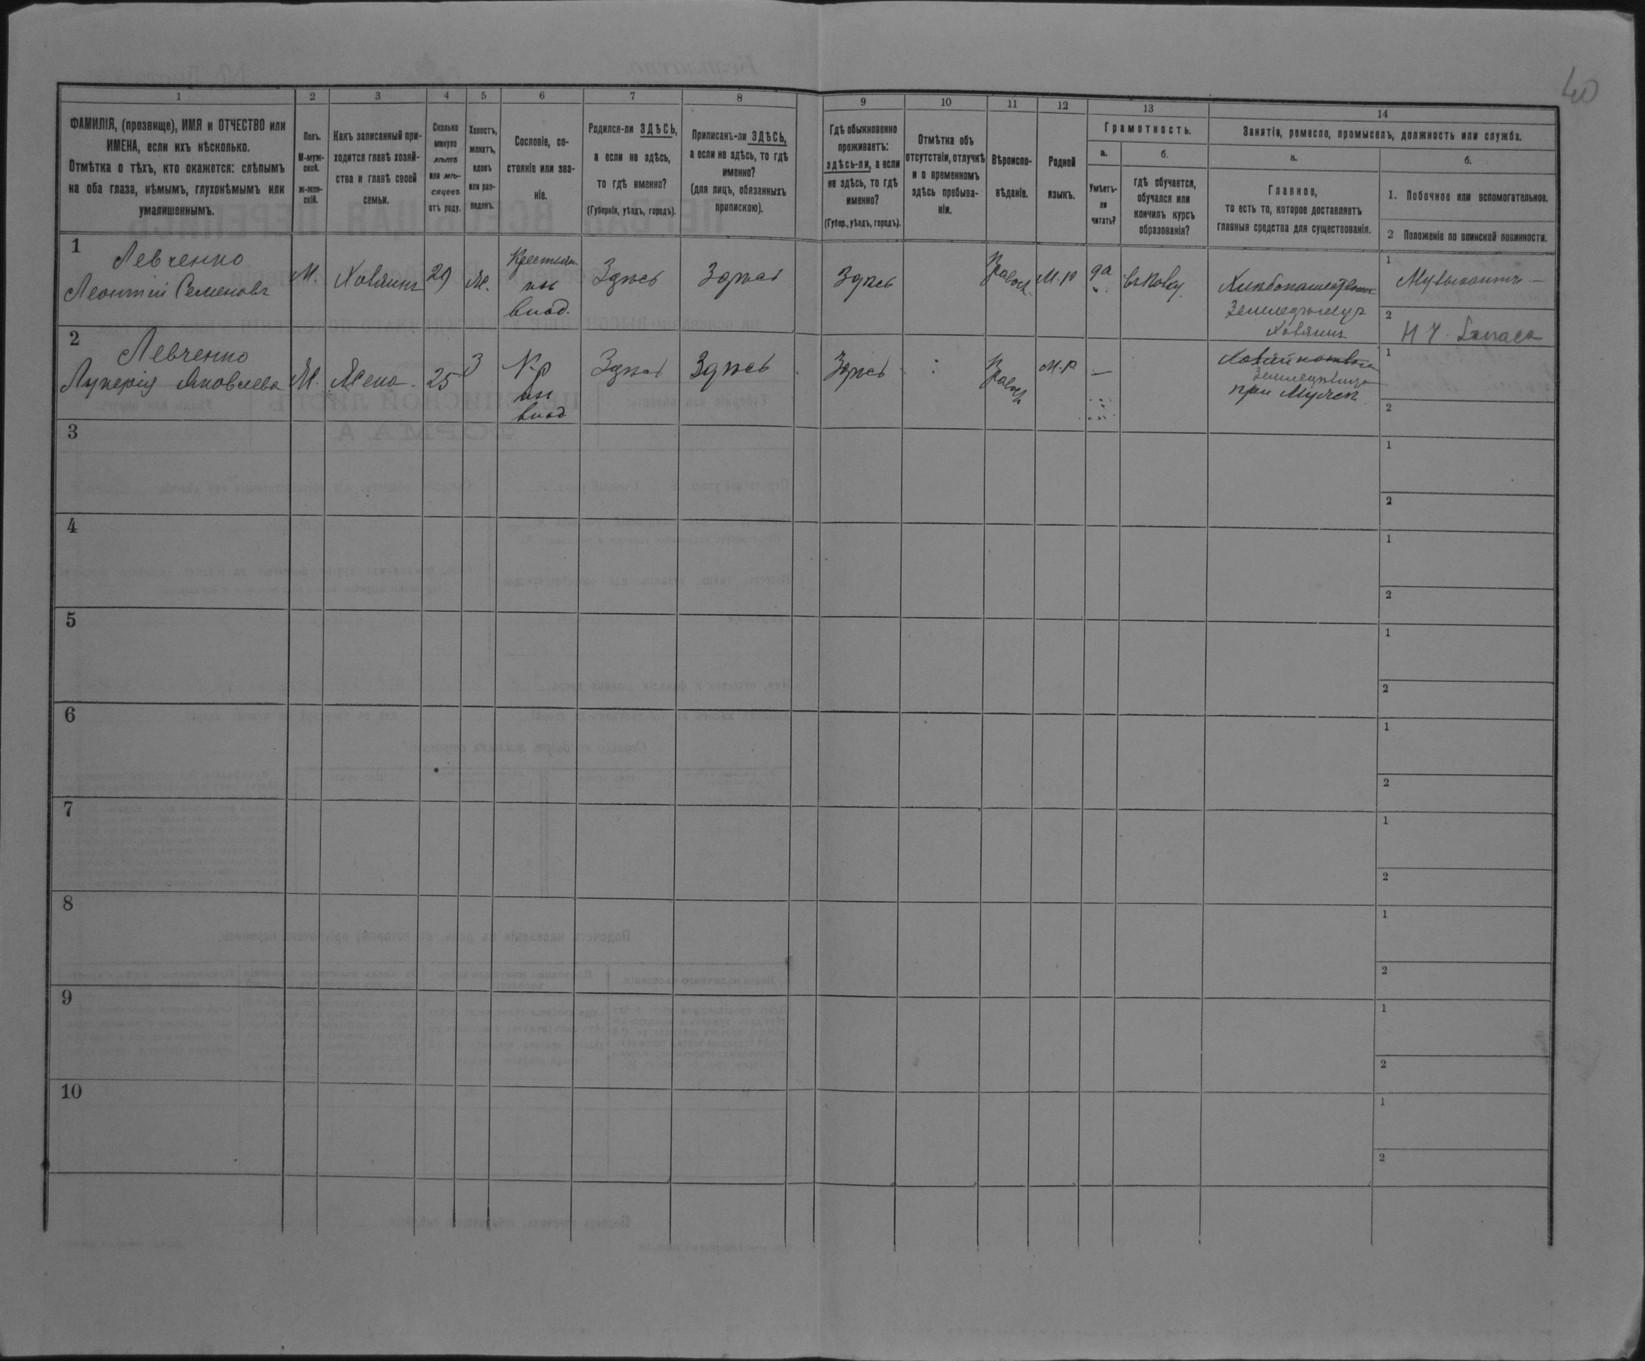 40
1 2 3 4 5 6 7 8 9 10 11 12 13 14
ФАМИЛІЯ, (прозвище), ИМЯ и ОТЧЕСТВО или
ИМЕНА, если ихъ нѣсколько.
Отмѣтка о тѣхъ, кто окажется: слѣпымъ
на оба глаза, нѣмымъ, глухонѣмымъ или
умалишеннымъ.
Полъ.
М-муж-
ской.
ж-жен-
скій.
Какъ записанный при-
ходится главѣ хозяй-
ства и главѣ своей
семьи.
Сколько
минуло
лѣтъ
или мѣ-
сяцевъ
отъ роду.
Холостъ,
женатъ,
вдовъ
или раз-
веденъ.
Сословіе, со-
стояніе или зва-
ніе.
Родился-ли ЗДѢСЬ,
а если не здѣсь,
то гдѣ именно?
(Губернія, уѣздъ, городъ).
Приписанъ-ли ЗДѢСЬ,
а если не здѣсь, то гдѣ
именно?
(для лицъ, обязанныхъ
припискою).
Гдѣ обыкновенно
проживаетъ:
здѣсь-ли, а если
не здѣсь, то гдѣ
именно?
(Губер., уѣздъ, городъ).
Отмѣтка объ
отсутствіи, отлучкѣ
и о временномъ
здѣсь пребыва-
ніи.
Вѣроиспо-
вѣданіе.
Родной
языкъ.
Грамотность.
а.
Умѣетъ-
ли
читать?
б.
гдѣ обучается,
обучался или
кончилъ курсъ
образованія?
Занятіе, ремесло, промыселъ, должность или служба.
а.
Главное,
то есть то, которое доставляетъ
главныя средства для существованія.
б.
1. Побочное или вспомогательное.
2 Положеніе по воинской повинности.
1
Левченко
Леонтій Семеновъ
М. Хозяинъ 29 Ж.
Крестьян
изъ
влад.
Здѣсь Здѣсь Здѣсь
Правосл. М.Р да
Земледѣлецъ
Хозяинъ
1
2
2
Левченко
Лукерія Яковлева
Ж. Жена 25 З
Кр
изъ
влад
Здѣсь Здѣсь Здѣсь
Правосл М.Р —
при Мужѣ
1
2
3
1
2
4
1
2
5
1
2
6
1
2
7
1
2
8
1
2
9
1
2
10
1
2